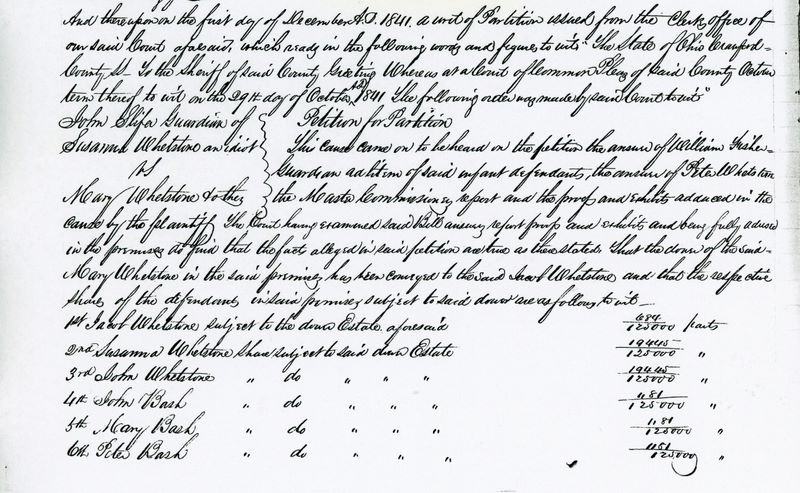 And thereupon on the first day of December A.D. 1841. a writ of Partition issued from the Clerks office of
our said Court aforesaid, which reads in the following words and figures to wit "The State of Ohio Crawford
County SS. To the Sheriff of said County Greeting Whereas at a Court of Common Pleas of said County October
term thereof to wit on the 29th day of October AD 1841 The following order was made by said Court to wit"
John Slifa Guardian of Petition for Partition
Susanna Whetstone an idiot This cause came on to be heard on the petition the answer of William Fisher
vs Guardian ad litem of said infant defendants, the answer of Peter Whetstone
Mary Whetstone & others the Master Commissioners report and the proof and exhibits adduced in the
cause by the plaintiff The Court having examined said Bill answers report proofs and exhibits and being fully advised
in the premises do find that the facts alleged in said petition are true as therein stated. That the dower of the said
Mary Whetstone in the said premises has been conveyed to the said Jacob Whetstone and that the respective
shares of the defendants in said premises subject to said dower are as follows, to wit
1st Jacob Whetstone subject to the dower Estate aforesaid 684/125000 parts
2nd Susanna Whetstone share subject to said dower Estate 19445/125000 "
3rd John Whetstone " do " " " 19445/125000 "
4th John Bash " do " " " 1181/125000 "
5th Mary Bash " do " " " 1181/125000 "
6th Peter Bash " do " " " /125000 "